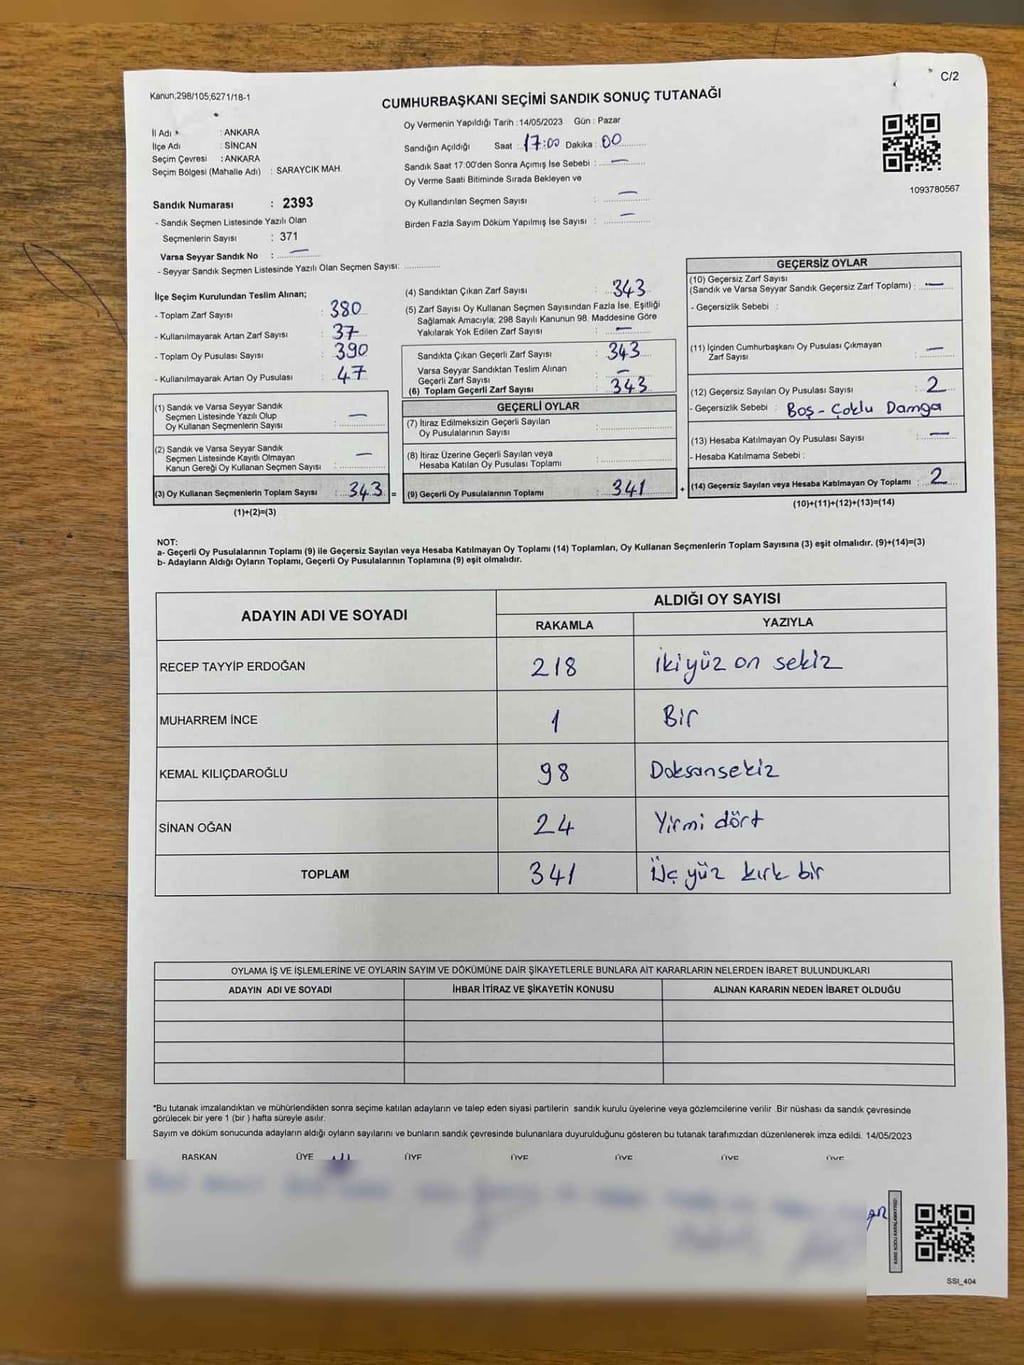 Kanun,298/105,6271/18-1
C/2
CUMHURBAŞKANI SEÇİMİ SANDIK SONUÇ TUTANAĞI
İl Adı : ANKARA
İlçe Adı : SİNCAN
Seçim Çevresi : ANKARA
Seçim Bölgesi (Mahalle Adı) : SARAYCIK MAH.
Sandık Numarası : 2393
- Sandık Seçmen Listesinde Yazılı Olan
Seçmenlerin Sayısı : 371
Varsa Seyyar Sandık No : —
- Seyyar Sandık Seçmen Listesinde Yazılı Olan Seçmen Sayısı:
Oy Vermenin Yapıldığı Tarih :14/05/2023 Gün : Pazar
Sandığın Açıldığı Saat : 17:00 Dakika : 00
Sandık Saat 17:00'den Sonra Açımış İse Sebebi : —
Oy Verme Saati Bitiminde Sırada Bekleyen ve
Oy Kullandırılan Seçmen Sayısı : —
Birden Fazla Sayım Döküm Yapılmış İse Sayısı : —
1093780567
İlçe Seçim Kurulundan Teslim Alınan;
- Toplam Zarf Sayısı : 380
- Kullanılmayarak Artan Zarf Sayısı : 37
- Toplam Oy Pusulası Sayısı : 390
- Kullanılmayarak Artan Oy Pusulası : 47
(1) Sandık ve Varsa Seyyar Sandık
Seçmen Listesinde Yazılı Olup
Oy Kullanan Seçmenlerin Sayısı : —
(2) Sandık ve Varsa Seyyar Sandık
Seçmen Listesinde Kayıtlı Olmayan
Kanun Gereği Oy Kullanan Seçmen Sayısı : —
(3) Oy Kullanan Seçmenlerin Toplam Sayısı : 343 =
(1)+(2)=(3)
(4) Sandıktan Çıkan Zarf Sayısı : 343
(5) Zarf Sayısı Oy Kullanan Seçmen Sayısından Fazla İse, Eşitliği
Sağlamak Amacıyla; 298 Sayılı Kanunun 98. Maddesine Göre
Yakılarak Yok Edilen Zarf Sayısı : —
Sandıkta Çıkan Geçerli Zarf Sayısı : 343
Varsa Seyyar Sandıktan Teslim Alınan
Geçerli Zarf Sayısı : —
(6) Toplam Geçerli Zarf Sayısı : 343
GEÇERLİ OYLAR
(7) İtiraz Edilmeksizin Geçerli Sayılan
Oy Pusulalarının Sayısı :
(8) İtiraz Üzerine Geçerli Sayılan veya
Hesaba Katılan Oy Pusulası Toplamı :
(9) Geçerli Oy Pusulalarının Toplamı : 341 +
GEÇERSİZ OYLAR
(10) Geçersiz Zarf Sayısı
(Sandık ve Varsa Seyyar Sandık Geçersiz Zarf Toplamı) : —
- Geçersizlik Sebebi :
(11) İçinden Cumhurbaşkanı Oy Pusulası Çıkmayan
Zarf Sayısı : —
(12) Geçersiz Sayılan Oy Pusulası Sayısı : 2
- Geçersizlik Sebebi : Boş - Çoklu Damga
(13) Hesaba Katılmayan Oy Pusulası Sayısı : —
- Hesaba Katılmama Sebebi :
(14) Geçersiz Sayılan veya Hesaba Katılmayan Oy Toplamı : 2
(10)+(11)+(12)+(13)=(14)
NOT:
a- Geçerli Oy Pusulalarının Toplamı (9) ile Geçersiz Sayılan veya Hesaba Katılmayan Oy Toplamı (14) Toplamları, Oy Kullanan Seçmenlerin Toplam Sayısına (3) eşit olmalıdır. (9)+(14)=(3)
b- Adayların Aldığı Oyların Toplamı, Geçerli Oy Pusulalarının Toplamına (9) eşit olmalıdır.
ADAYIN ADI VE SOYADI
ALDIĞI OY SAYISI
RAKAMLA YAZIYLA
RECEP TAYYİP ERDOĞAN 218 ikiyüz on sekiz
MUHARREM İNCE 1 Bir
KEMAL KILIÇDAROĞLU 98 Doksansekiz
SİNAN OĞAN 24 Yirmi dört
TOPLAM 341 Üç yüz kırk bir
OYLAMA İŞ VE İŞLEMLERİNE VE OYLARIN SAYIM VE DÖKÜMÜNE DAİR ŞİKAYETLERLE BUNLARA AİT KARARLARIN NELERDEN İBARET BULUNDUKLARI
ADAYIN ADI VE SOYADI İHBAR İTİRAZ VE ŞİKAYETİN KONUSU ALINAN KARARIN NEDEN İBARET OLDUĞU
*Bu tutanak imzalandıktan ve mühürlendikten sonra seçime katılan adayların ve talep eden siyasi partilerin sandık kurulu üyelerine veya gözlemcilerine verilir .Bir nüshası da sandık çevresinde
görülecek bir yere 1 (bir ) hafta süreyle asılır.
Sayım ve döküm sonucunda adayların aldığı oyların sayılarını ve bunların sandık çevresinde bulunanlara duyurulduğunu gösteren bu tutanak tarafımızdan düzenlenerek imza edildi. 14/05/2023
BAŞKAN ÜYE ÜYE ÜYE ÜYE ÜYE ÜYE
SSI_404